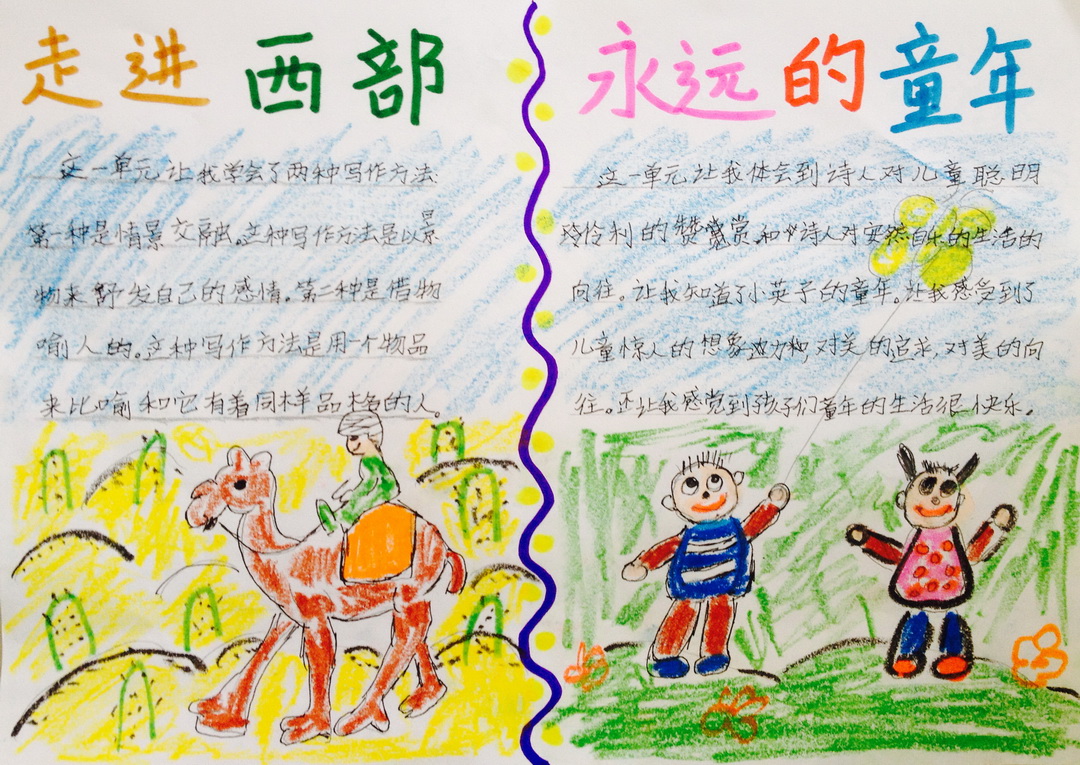 走进西部
这一单元让我学会了两种写作方法
第一种是情景交融。这种写作方法是以景
物来抒发自己的感情。第二种是借物
喻人的。这种写作方法是用一个物品
来比喻和它有着同样品格的人。
永远的童年
这一单元让我体会到诗人对儿童聪明
伶利的赞赏和诗人对自乐的生活的
向往。让我知道了小英子的童年。让我感受到了
儿童惊人的想象力和对美的追求,对美的向
往。还让我感觉到孩子们童年的生活很快乐。